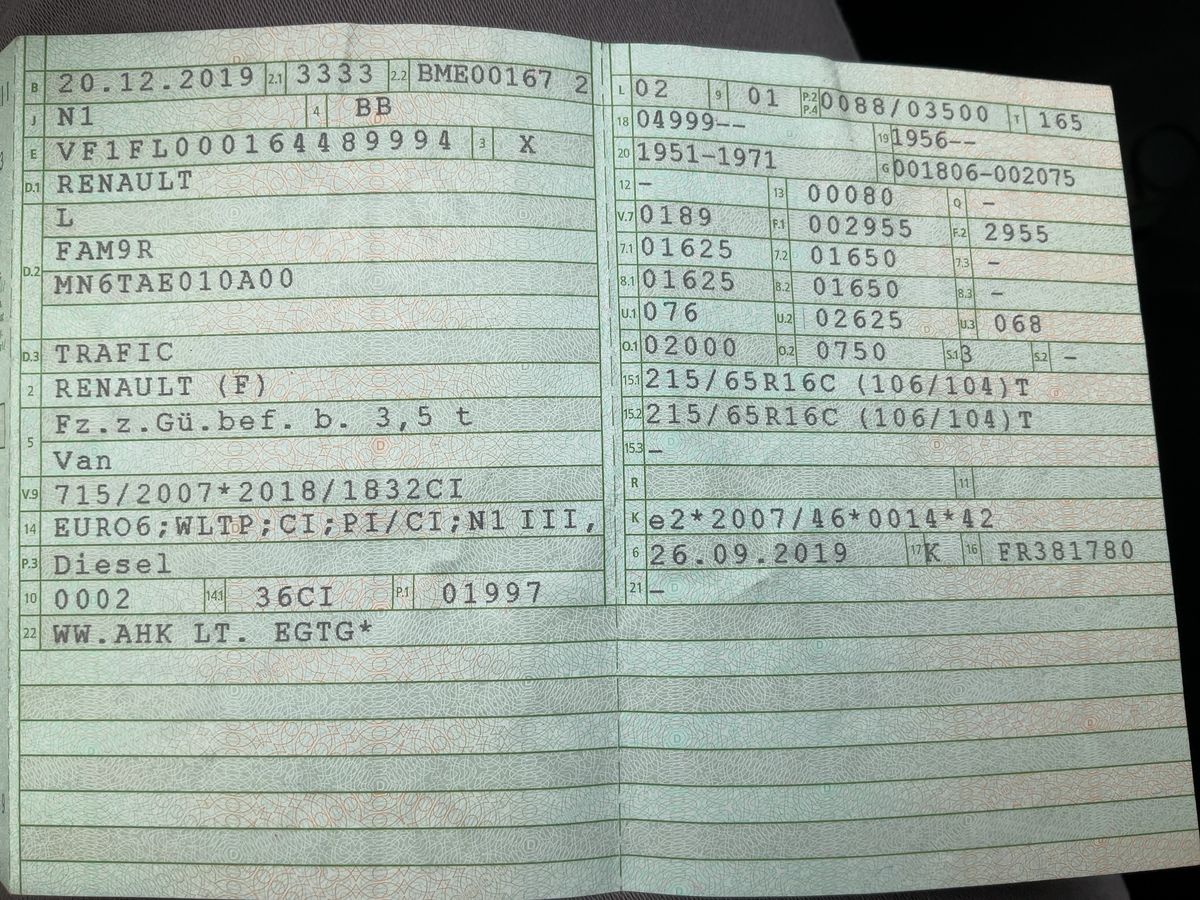 B 20.12.2019 2.1 3333 2.2 BME00167 2
J N1 4 BB
E VF1FL000164489994 3 X
D.1 RENAULT
L
D.2 FAM9R
MN6TAE010A00
D.3 TRAFIC
2 RENAULT (F)
5 Fz.z.Gü.bef. b. 3,5 t
Van
V.9 715/2007*2018/1832CI
14 EURO6;WLTP;CI;PI/CI;N1 III,
P.3 Diesel
10 0002 14.1 36CI P.1 01997
22 WW.AHK LT. EGTG*
L 02 9 01 P.2 P.4 0088/03500 T 165
18 04999-- 19 1956--
20 1951-1971 G 001806-002075
12 - 13 00080 Q -
V.7 0189 F.1 002955 F.2 2955
7.1 01625 7.2 01650 7.3 -
8.1 01625 8.2 01650 8.3 -
U.1 076 U.2 02625 U.3 068
O.1 02000 O.2 0750 S.1 3 S.2 -
15.1 215/65R16C (106/104)T
15.2 215/65R16C (106/104)T
15.3 -
R 11
K e2*2007/46*0014*42
6 26.09.2019 17 K 16 FR381780
21 -